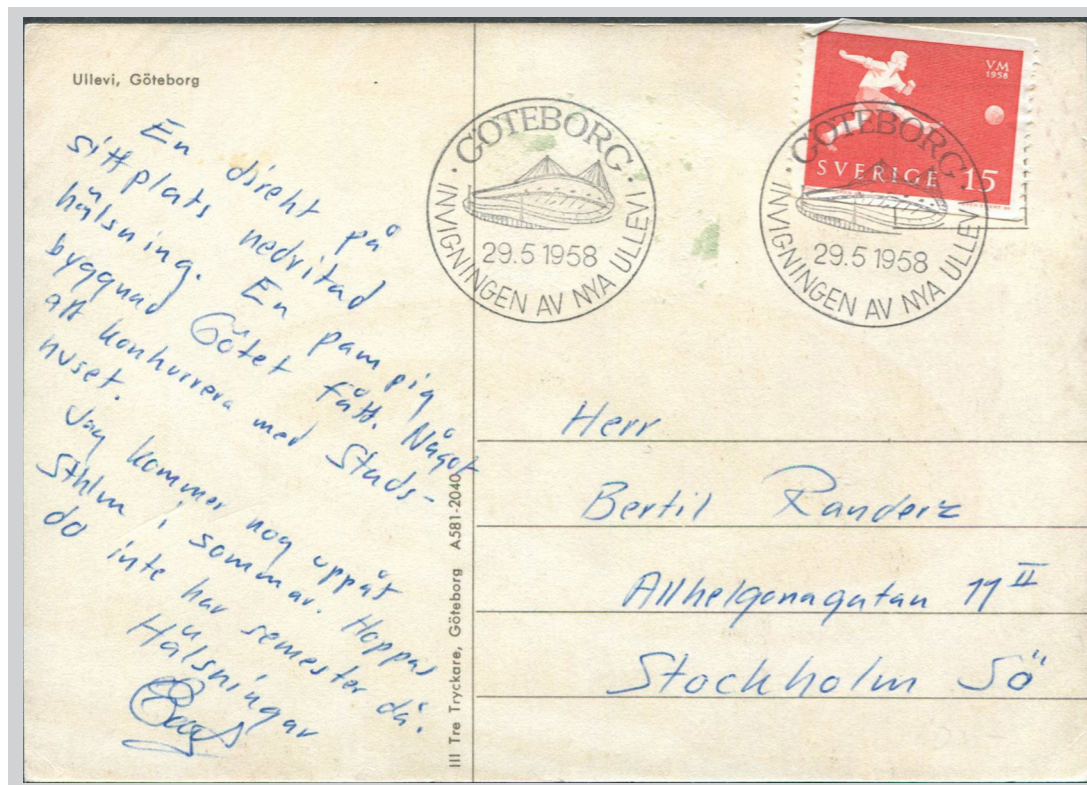 Ullevi, Göteborg
En direkt på
sittplats nedritad
hälsning. En pampig
byggnad Götet fått. Något
att konkurrera med Stads-
huset.
Jag kommer nog uppåt
Sthlm i sommar. Hoppas
du inte har semester då.
Hälsningar
III Tre Tryckare, Göteborg A581-2040
GÖTEBORG
29.5 1958
INVIGNINGEN AV NYA ULLEVI
VM
1958
SVERIGE 15
GÖTEBORG
29.5 1958
INVIGNINGEN AV NYA ULLEVI
Herr
Bertil Randerz
Allhelgonagatan 11 II
Stockholm Sö